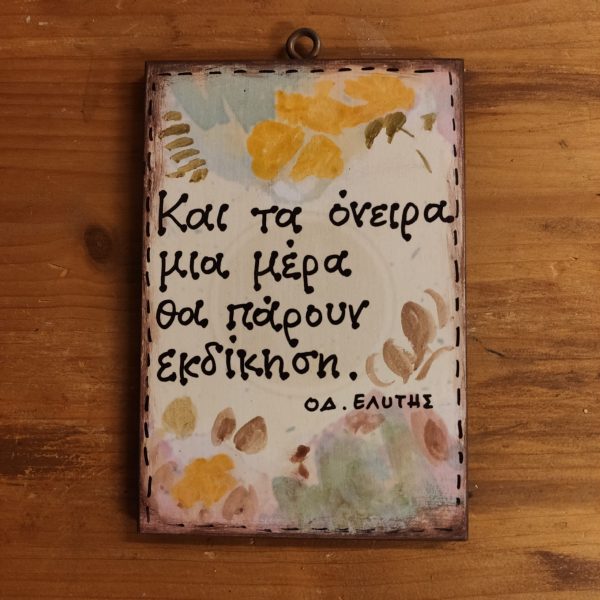 Και τα όνειρα
μια μέρα
θα πάρουν
εκδίκηση.
ΟΔ. ΕΛΥΤΗΣ